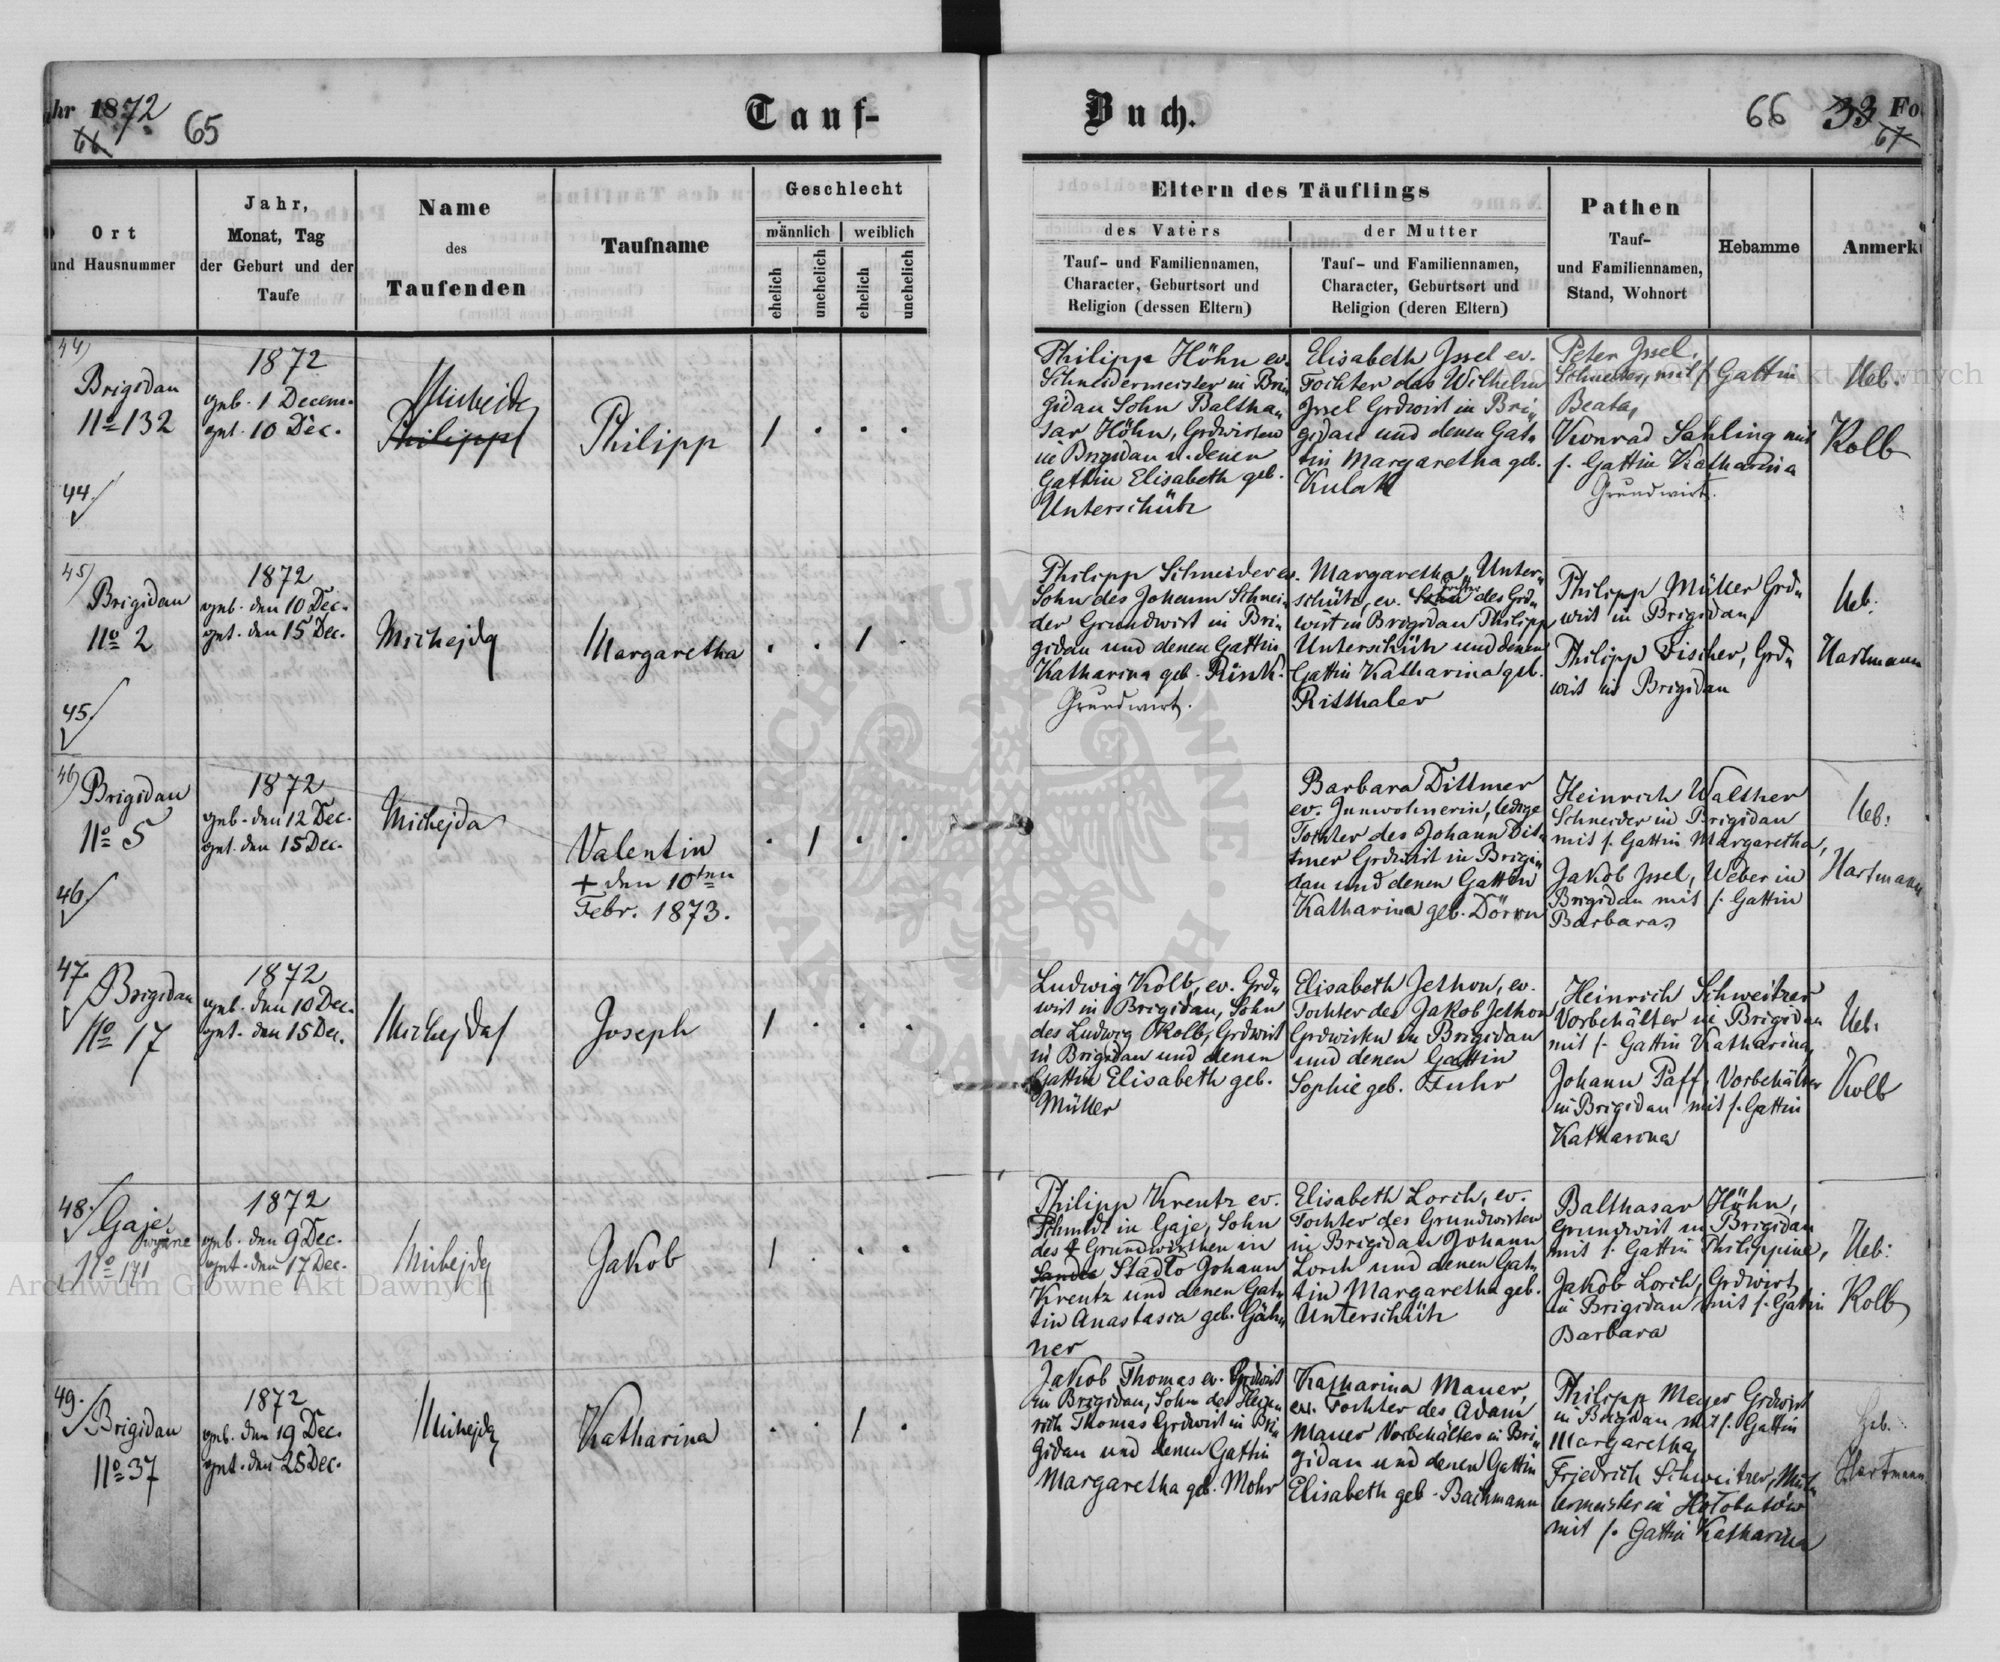 hr 1872
66
65
Tauf-
Buch.
66 33 Fo
67
Ort
und Hausnummer
Jahr,
Monat, Tag
der Geburt und der
Taufe
Name
des
Taufenden
Taufname
Geschlecht
männlich weiblich
ehelich unehelich ehelich unehelich
Eltern des Täuflings
des Vaters
Tauf- und Familiennamen,
Character, Geburtsort und
Religion (dessen Eltern)
der Mutter
Tauf- und Familiennamen,
Character, Geburtsort und
Religion (deren Eltern)
Pathen
Tauf-
und Familiennamen,
Stand, Wohnort
Hebamme
Anmerku
44)
Brigidau
No 132
44
1872
geb. 1 Decem.
get. 10 Dec.
Michejda
Philipp
Philipp
1 . . .
Philipp Höhn ev.
Schneidermeister in Bri„
gidau Sohn Baltha„
sar Höhn, Grdwirten
in Brigidau u. denen
Gattin Elisabeth geb.
Unterschütz
Elisabeth Jssel ev.
Tochter das Wilhelm
Jssel Grdwirt in Bri„
gidau und denen Gat„
tin Margaretha geb.
Kulak
Peter Jssel,
Schneider, mit f. Gattin
Beata,
Konrad Sahling mit
f. Gattin Katharina
Grundwirt.
Ueb.
Kolb
45)
Brigidau
No 2
45.
1872
geb. den 10 Dec.
get. den 15 Dec.
Michejda
Margaretha
. . 1 .
Philipp Schneider ev.
Sohn des Johann Schnei„
der Grundwirt in Bri„
gidau und denen Gattin
Katharina geb. Rink.
Grundwirt.
Margaretha Unter„
schütz, ev. Sohn Tochter des Grd„
wirt in Brigidau Philipp
Unterschütz und denen
Gattin Katharina geb.
Ritthaler
Philipp Müller Grd„
wirt in Brigidau,
Philipp Fischer, Grd„
wirt in Brigidau
Ueb.
Hartmann
46)
Brigidau
No 5
46.
1872
geb. den 12 Dec.
get. den 15 Dec.
Michejda
Valentin
+ den 10ten
Febr. 1873.
. 1 . .
Barbara Dittmer
ev. Innwohnerin, ledige
Tochter des Johann Dit„
tmer Grdwirt in Brigi„
dau und denen Gattin
Katharina geb. Dörrn
Heinrich Walther
Schneider in Brigidau
mit f. Gattin Margaretha,
Jakob Jssel, Weber in
Brigidau mit f. Gattin
Barbara
Ueb:
Hartmann
47.
Brigidau
No 17
1872
geb. den 10 Dec.
get. den 15 Dec.
Michejda
Joseph
1 . . .
Ludwig Kolb, ev. Grd„
wirt in Brigidau, Sohn
des Ludwig Kolb, Grdwirt
in Brigidau und denen
Gattin Elisabeth geb.
Müller
Elisabeth Jethon, ev.
Tochter des Jakob Jethon
Grdwirten in Brigidau
und denen Gattin
Sophie geb. Fuhr
Heinrich Schweitzer
Vorbehälter in Brigidau
mit f. Gattin Katharina,
Johann Paff, Vorbehälter
in Brigidau mit f. Gattin
Katharina
Ueb:
Kolb
48.
Gaje
wyżne
No 141
1872
geb. den 9 Dec.
get. den 17 Dec.
Michejda
Jakob
1 . . .
Philipp Kreutz ev.
Schmidt in Gaje, Sohn
des + Grundwirthen in
Stadło Johann
Kreutz und denen Gat„
tin Anastasia geb. Gäh„
ner
Elisabeth Lorch, ev.
Tochter des Grundwirten
in Brigidau Johann
Lorch und denen Gat„
tin Margaretha geb.
Unterschütz
Balthasar Höhn,
Grundwirt in Brigidau
mit f. Gattin Philippine,
Jakob Lorch, Grdwirt,
in Brigidau mit f. Gattin
Barbara
Ueb:
Kolb
49.
Brigidau
No 37
1872
geb. den 19 Dec.
get. den 25 Dec.
Michejda
Katharina
. . 1 .
Jakob Thomas ev. Grdwirt
in Brigidau, Sohn des Hein„
rich Thomas Grdwirt in Bri„
gidau und denen Gattin
Margaretha geb. Mohr
Katharina Mauer,
ev. Tochter des Adam
Mauer Vorbehälter in Bri„
gidau und denen Gattin
Elisabeth geb. Bachmann
Philipp Meyer Grdwirt
in Brigidau mit f. Gattin
Margaretha,
Friedrich Schweitzer, Mül„
lermeister in Hołobutów
mit f. Gattin Katharina
Heb.
Hartmann
Archiwum Główne Akt Dawnych
Archiwum Główne Akt Dawnych